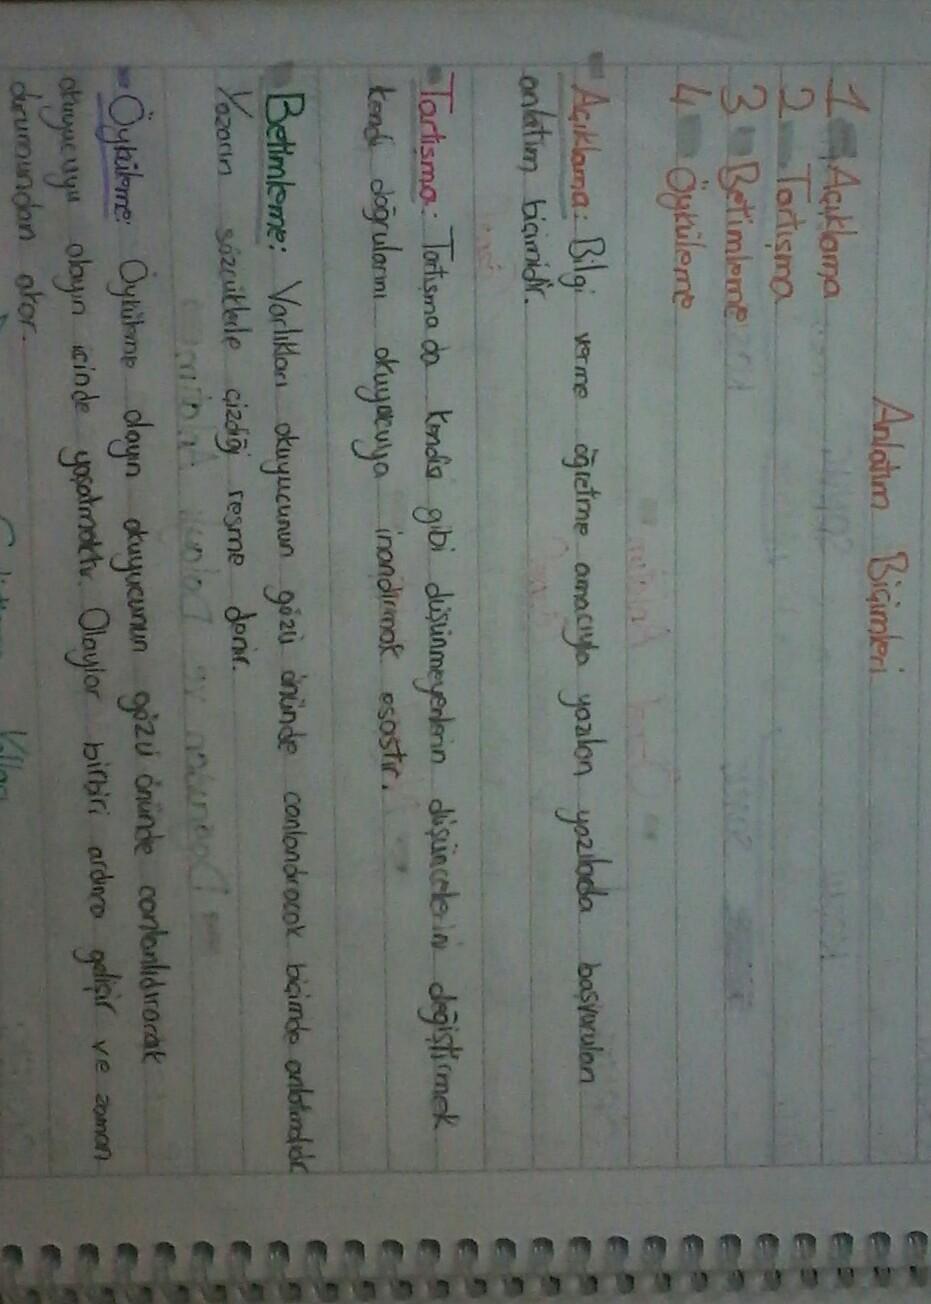 Anlatım Biçimleri
1 Açıklama
2 Tartışma
3 Betimleme
4 Öyküleme
Açıklama: Bilgi verme öğretme amacıyla yazılan yazılarda başvurulan
anlatım biçimidir.
Tartışma: Tartışmada kendisi gibi düşünmeyenlerin düşüncelerini değiştirmek
kendi doğrularını okuyucuya inandırmak esastır.
Betimleme: Varlıkları okuyucunun gözü önünde canlandıracak biçimde anlatımdır
Yazarın sözcüklerle çizdiği resme denir.
Öyküleme: Öyküleme olayın okuyucunun gözü önünde canlanldırarak
okuyucuyu olayın içinde yaşatmaktır. Olaylar birbiri ardınra gelişir ve zaman
durumundan akar.
Yolları